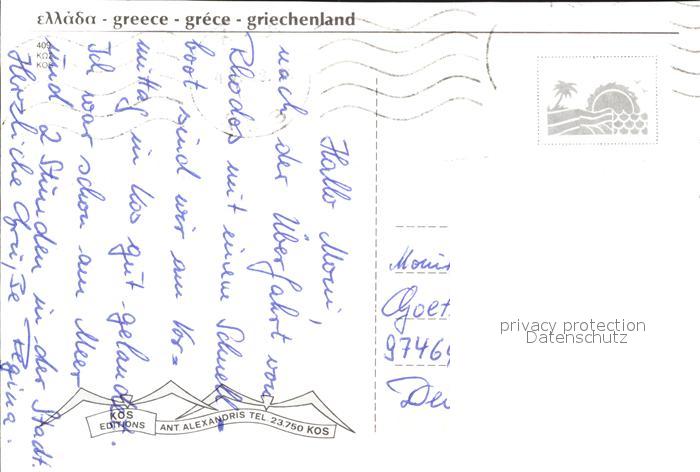 ελλάδα - greece - gréce - griechenland
409
ΚΩΣ
Hallo Moni,
nach der Überfahrt von
Rhodos mit einem Schnell-
boot sind wir am Vor=
mittag in Kos gut gelandet.
Ich war schon am Meer
und 2 Stunden in der Stadt.
Herzliche Grüße Regina.
Goet
9746
De
privacy protection
Datenschutz
KOS
EDITIONS
ANT ALEXANDRIS TEL. 23.750 KOS